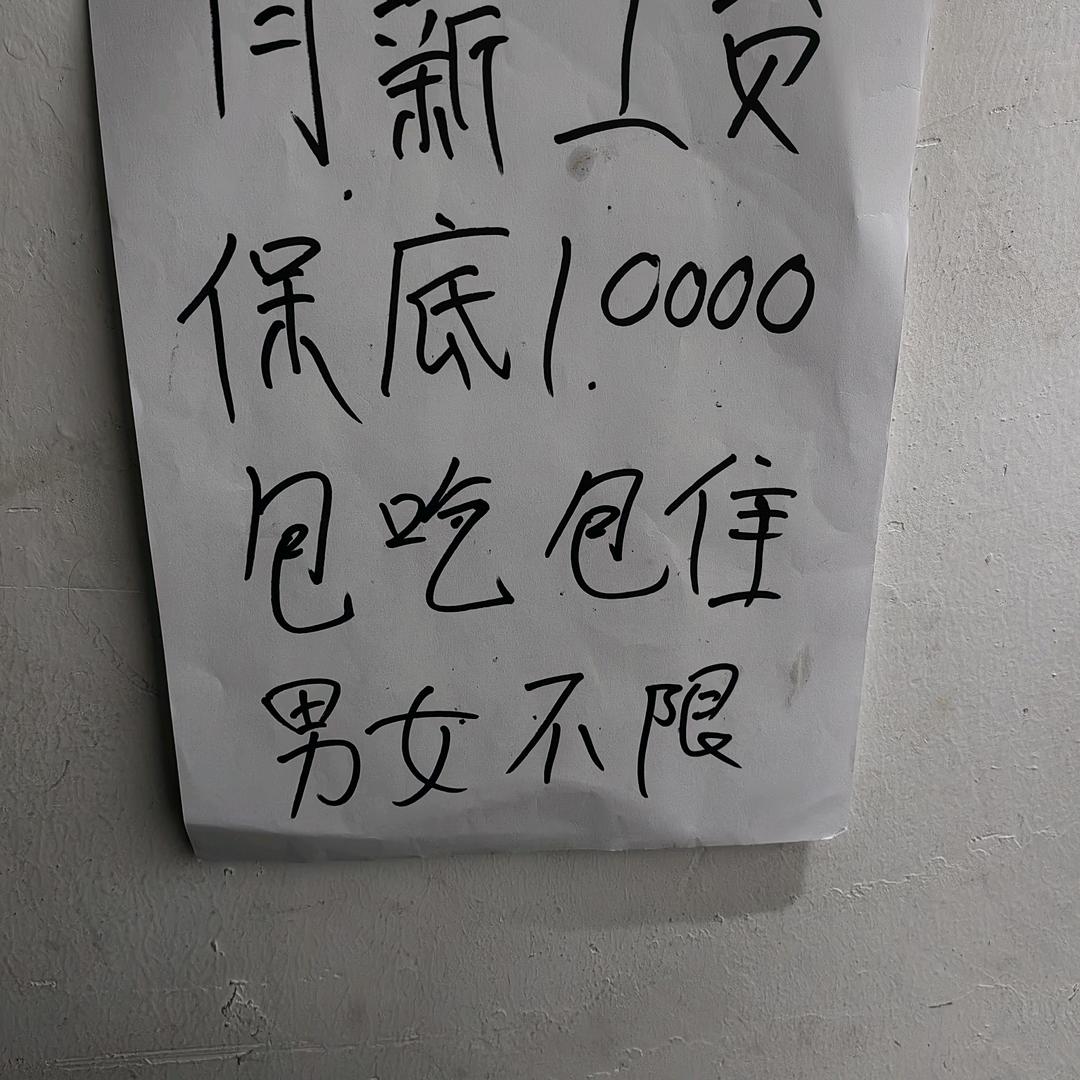 月薪工资
保底10000
包吃包住
男女不限